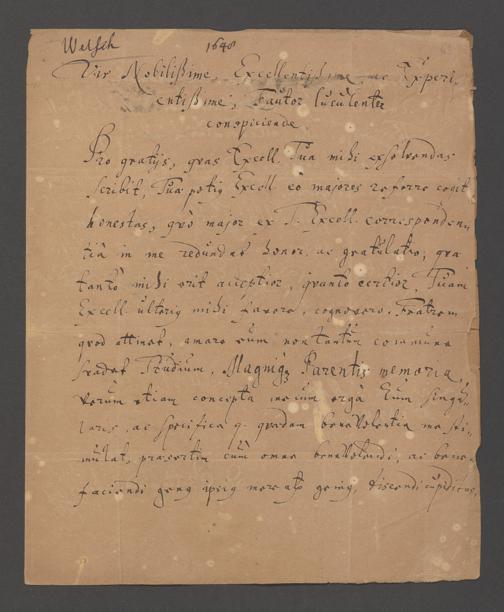 Welsch 1648
Vir Nobilißime, Excellentissime ac Experi-
entißime, Fautor luculenter
conspiciende.
Pro gratijs, quas Excell. Tua mihi exsolvendas
scribit, Tuae potiq Excell. eo majores referre cogit
honestas, quò major ex T. Excell. corresponden-
tiâ in me redundat honor ac gratulatio, qua
tantò mihi erit acceptior, quantò certior, Tuam
Excell. ulteriq mihi favere, cognovero. Fratrem
quod attinet, amare eum non tantùm commune
svadet studium, Magniq Parentis memoria,
verùm etiam concepta mecum ergà Eum singu-
laris, ac specifica q. quadam benevolentia me sti-
mulat, praesertim cùm omne benevolendi, ac bene-
faciendi genq ipsiq mereatur geniq, discendi cupidissimq